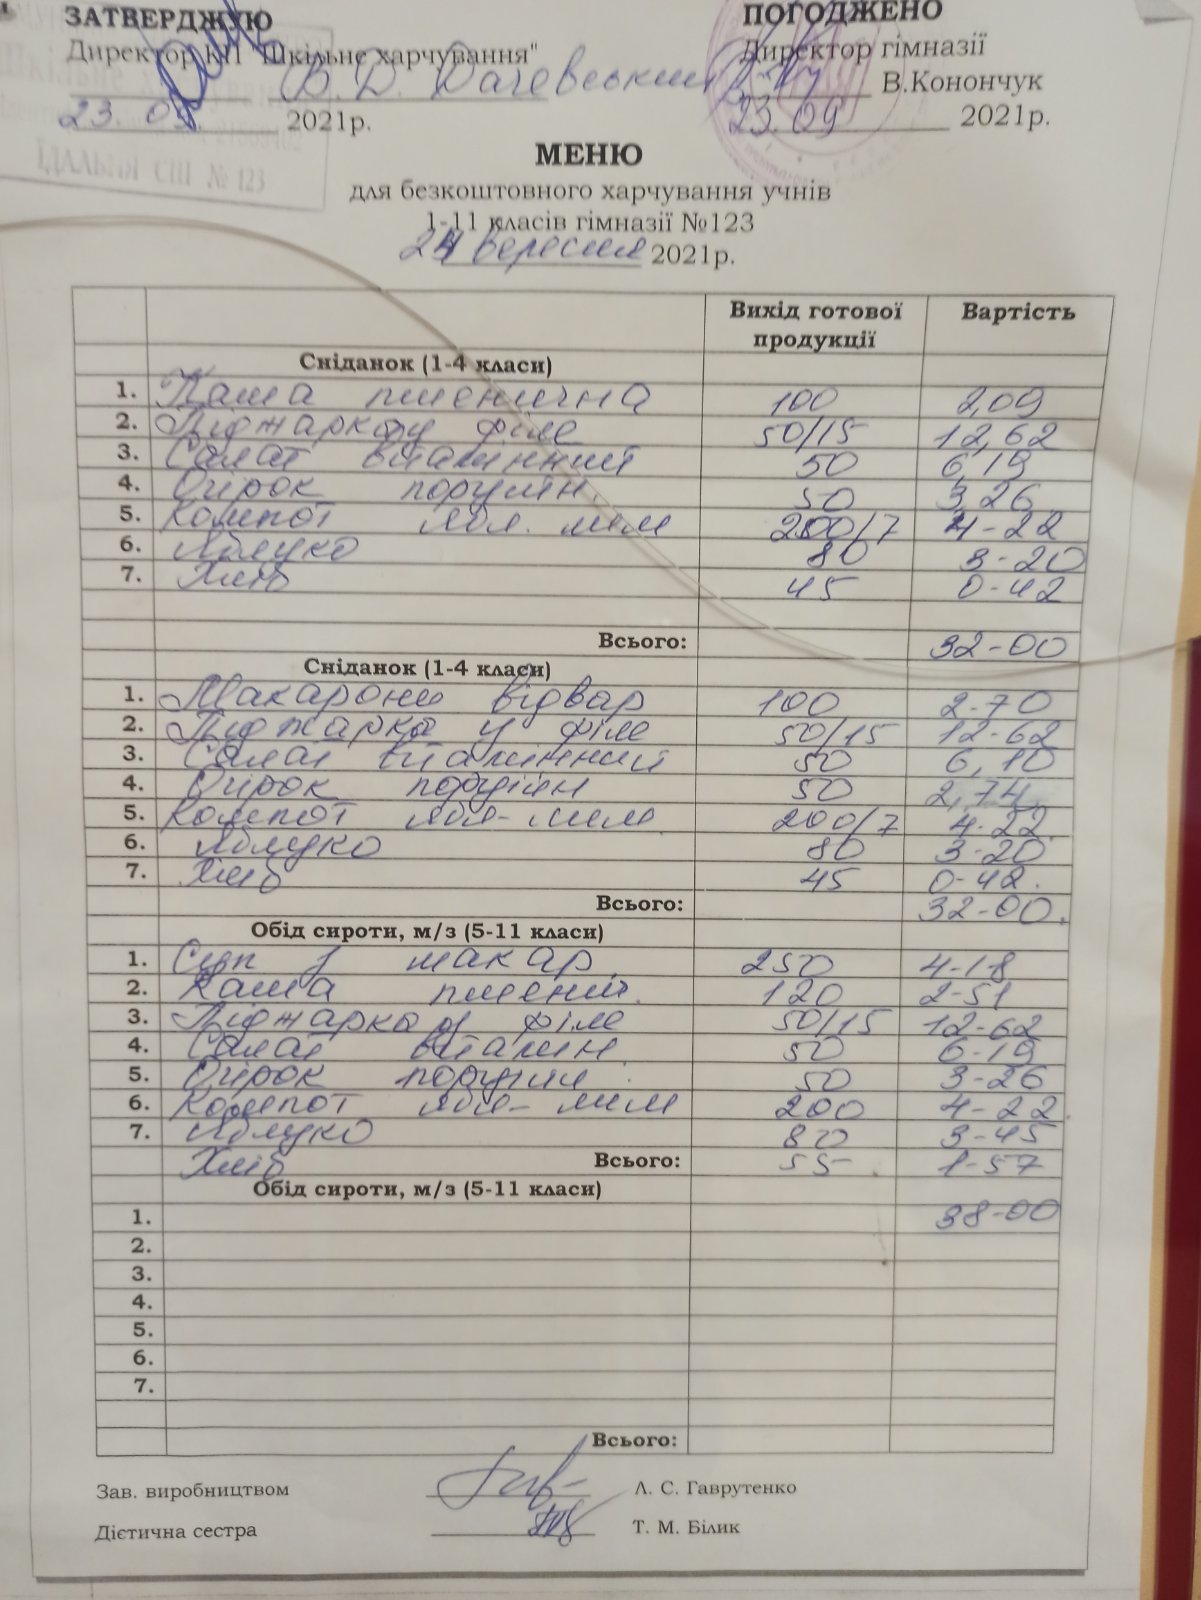 ЗАТВЕРДЖУЮ ПОГОДЖЕНО
Директор КП "Шкільне харчування" Директор гімназії
В.Конончук
23.09. 2021р. 23.09 2021р.
ЇДАЛЬНЯ СШ № 123
МЕНЮ
для безкоштовного харчування учнів
1-11 класів гімназії №123
24 вересня 2021р.
Вихід готової продукції Вартість
Сніданок (1-4 класи)
1. Каша пшенична 100 2,09
2. Піджарка у філе 50/15 12,62
3. Салат вітамінний 50 6,19
4. Огірок порційн. 50 3,26
5. Компот ябл. лим 200/7 4-22
6. Яблуко 80 3-20
7. Хліб 45 0-42
Всього: 32-00
Сніданок (1-4 класи)
1. Макарони відвар 100 2-70
2. Піджарка у філе 50/15 12-62
3. Салат вітамінний 50 6,10
4. Огірок порційн 50 2,74
5. Компот ябл-лим 200/7 4-22.
6. Яблуко 80 3-20
7. Хліб 45 0-42.
Всього: 32-00.
Обід сироти, м/з (5-11 класи)
1. Суп з макар. 250 4-18
2. Каша пшенич. 120 2-51
3. Піджарка з філе 50/15 12-62
4. Салат вітамін. 50 6-19
5. Огірок порційн. 50 3-26
6. Компот ябл-лим 200 4-22.
7. Яблуко 80 3-45
Хліб Всього: 55 1-57
Обід сироти, м/з (5-11 класи)
1. 38-00
2.
3.
4.
5.
6.
7.
Всього:
Зав. виробництвом Л. С. Гаврутенко
Дієтична сестра Т. М. Білик